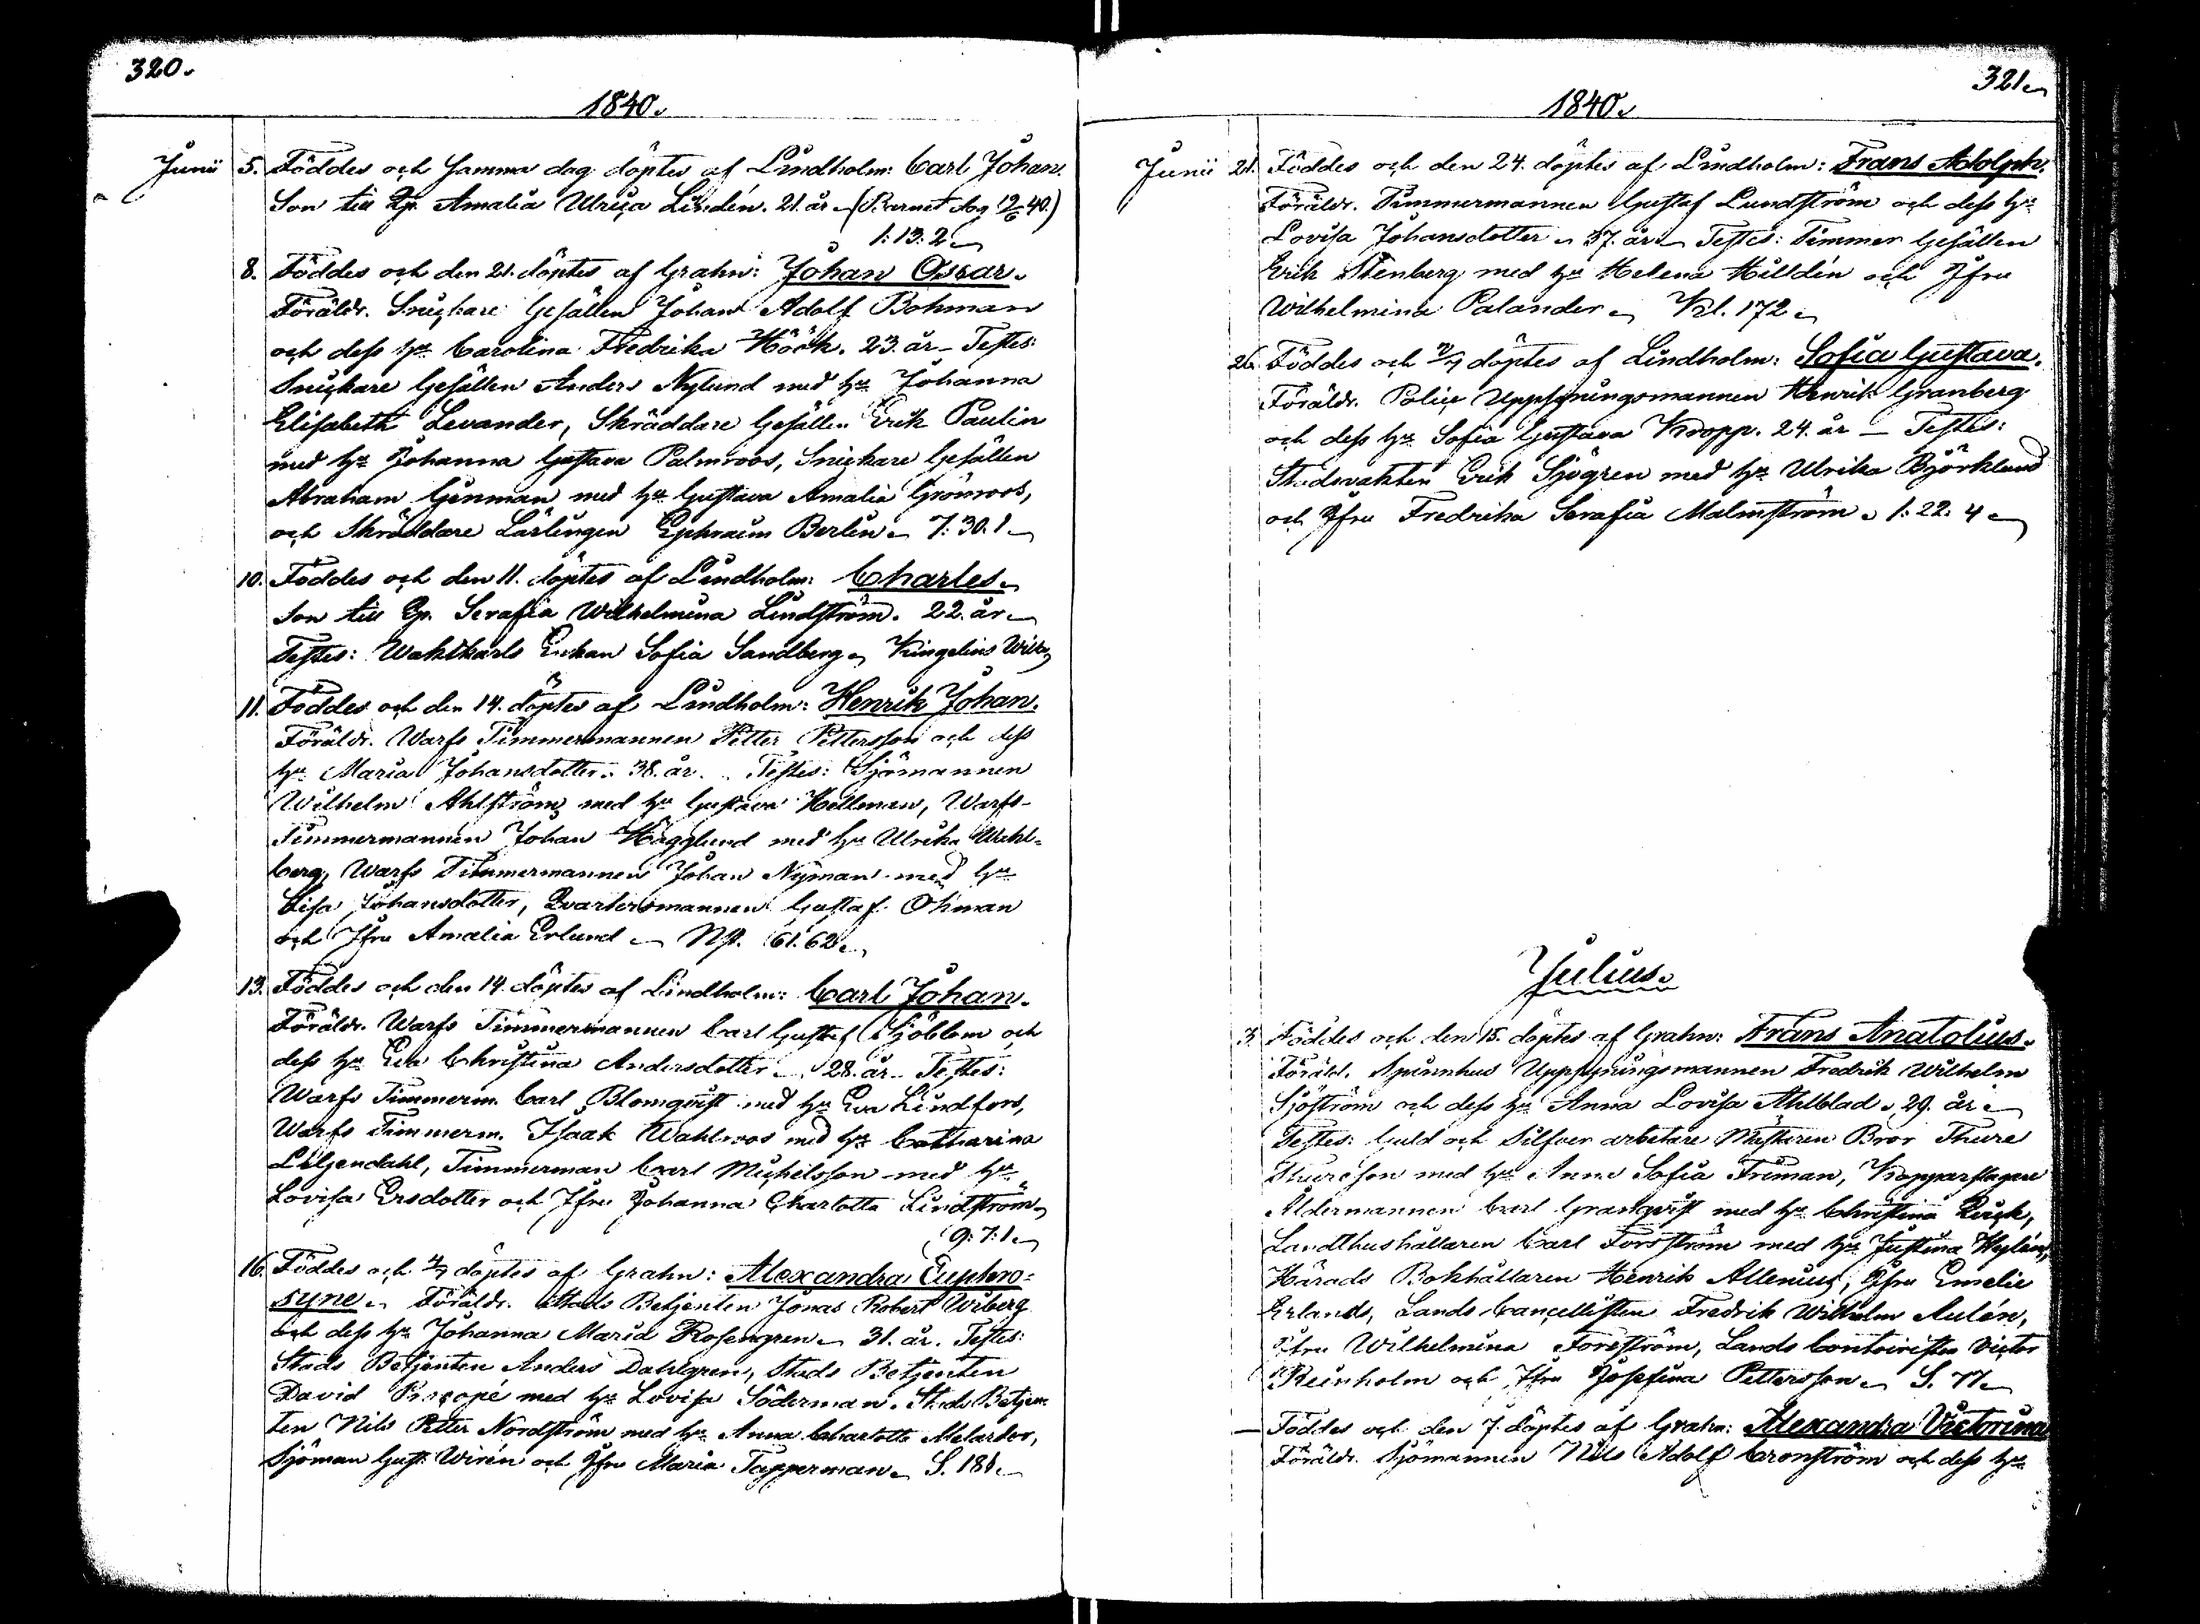 320.
1840.
Junii 5. Föddes och samma dag döptes af Lindholm: Carl Johan.
Son till Qp. Amalia Ulrica Lindén. 21. år. (Barnet dog 12/6 40.)
1: 13: 2.
8. Föddes och den 21. döptes af Grahn: Johan Oscar.
Föräldr. Snickare Gesällen Johan Adolf Bohman
och dess h:u Carolina Fredrika Höök. 23. år. Testes:
Snickare Gesällen Anders Nylund med h:u Johanna
Elisabeth Levander, Skräddare Gesällen Erik Paulin
med h:u Johanna Gustava Palmroos, Snickare Gesällen
Abraham Genman med h:u Gustava Amalia Grönroos,
och Skräddare Lärlingen Ephraim Berlin. 7: 30. 1.
10. Föddes och den 11. döptes af Lindholm: Charles.
Son till Qp. Serafia Wilhelmina Lindström. 22. år.
Testes: Waktkarls Enkan Sofia Sandberg. Kingelins
11. Föddes och den 14. döptes af Lindholm: Henrik Johan.
Föräldr. Warfs Timmermannen Petter Pettersson och dess
h:u Maria Johansdotter. 38. år. Testes: Sjömannen
Wilhelm Ahlström med h:u Gustava Hellman, Warfs-
Timmermannen Johan Hägglund med h:u Ulrika Wahl-
berg, Warfs Timmermannen Johan Nyman med h:u
Lisa Johansdotter, Qvartersmannen Gustaf Öhman
och Jfru Amalia Erlund. Np. 61. 62.
13. Föddes och den 14. döptes af Lindholm: Carl Johan.
Föräldr. Warfs Timmermannen Carl Gustaf Sjöblom och
dess h:u Eva Christina Andersdotter. 28. år. Testes:
Warfs Timmerm. Carl Blomqvist med h:u Eva Lindfors,
Warfs Timmerm. Isaak Wahlroos med h:u Catharina
Liljendahl, Timmerman Carl Michelsson med h:u
Lovisa Ersdotter och Jfru Johanna Charlotta Lindström.
9: 7: 1.
16. Föddes och döptes af Grahn: Alexandra Euphro-
syne. Föräldr. Stads Betjenten Jonas Robert Wiberg
och dess h:u Johanna Maria Rosengren. 31. år. Testes:
Stads Betjenten Anders Dahlgren, Stads Betjenten
David Procopé med h:u Lovisa Söderman. Stads Betjen-
ten Nils Petter Nordström med h:u Anna Charlotta Melartor,
Sjöman Gust. Wirén och Jfru Maria Tapperman. S. 181.
321.
1840.
Junii 21. Föddes och den 24. döptes af Lindholm: Frans Adolph.
Föräldr. Timmermannen Gustaf Lundström och dess h:u
Lovisa Johansdotter. 37. år. Testes: Timmer Gesällen
Erik Stenberg med h:u Helena Hilldén och Jfru
Wilhelmina Palander. Kl. 172.
26. Föddes och döptes af Lindholm: Sofia Gustava.
Föräldr. Police Uppsyningsmannen Henrik Granberg
och dess h:u Sofia Gustava Kropp. 24. år. Testes:
Stadsvakten Erik Sjögren med h:u Ulrika Björklund
och Jfru Fredrika Serafia Malmström. 1: 22. 4.
Julius.
3. Föddes och den 15. döptes af Grahn: Frans Anatolius.
Föräld. Spinnhus Uppsyningsmannen Fredrik Wilhelm
Sjöström och dess h:u Anna Lovisa Ahlblad. 29. år.
Testes: Guld och Silfver arbetare Mästaren Bror Thure
Thuresson med h:u Anna Sofia Friman, Kopparslagare
Åldermannen Carl Granqvist med h:u Christina
Landthushållaren Carl Forsström med h:u Justina
Härads Bokhållaren Henrik Allenius, Jfru Emelie
Erlands, Lands Cancellisten Fredrik Wilhelm Aulén,
Jfru Wilhelmina Forsström, Lands Contoiristen Victor
Reinholm och Jfru Josefina Pettersson. S. 77.
— Föddes och den 7. döptes af Grahn: Alexandra Victorina
Föräldr. Sjömannen Nils Adolf Cronström och dess h:u